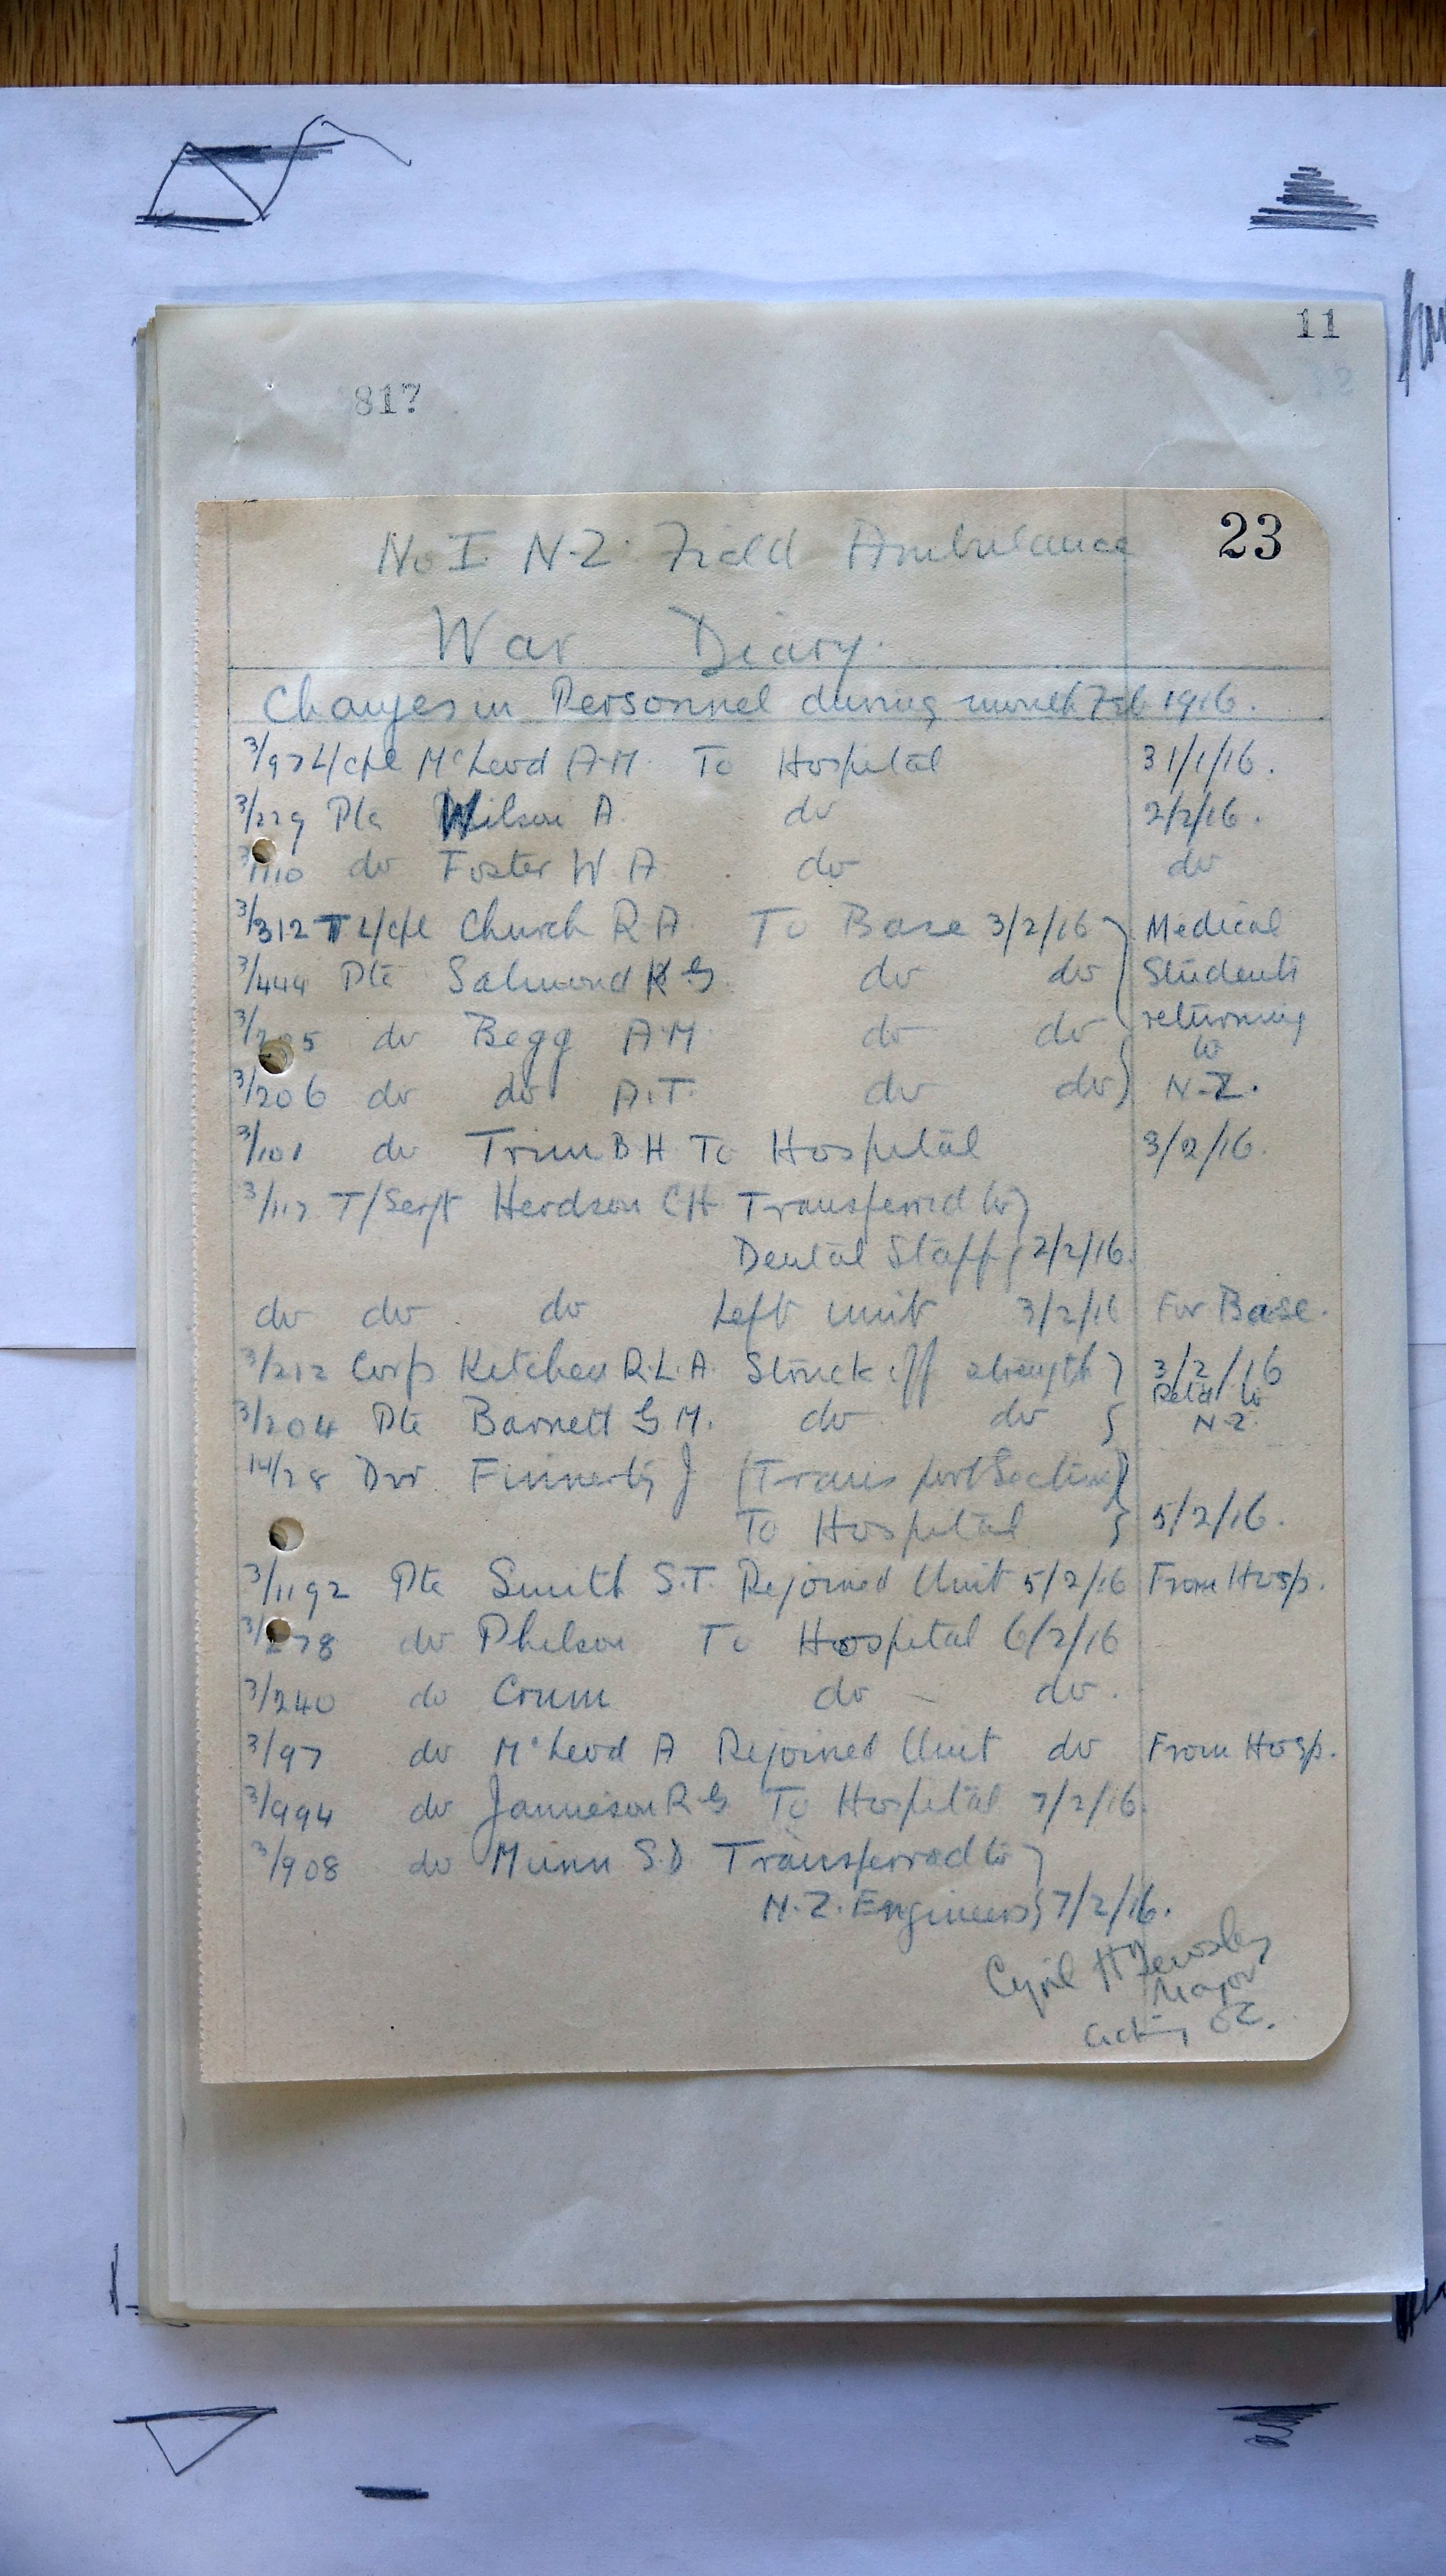 11
817
23
No I. N-Z. Field Ambulance
War Diary.
Changes in Personnel during month Feb 1916.
3/97 L/cpl McLeod A.M. To Hospital 31/1/16.
3/229 Pte Wilson A. do 2/2/16.
do Foster W A do do
3/312 T L/cpl Church R.A. To Base 3/2/16 } Medical
3/444 Pte Salmond K G. do do Students
do Begg A.M. do do returning
to
3/206 do do A.T. do do } N-Z.
3/101 do Trim B H To Hospital 3/2/16.
3/117 T/Sergt Herdson C H Transferred to }
Dental Staff } 2/2/16.
do do do Left unit 3/2/16 For Base.
3/212 Corp Ketchen R.L.A. Struck off strength } 3/2/16
Retd to
3/204 Pte Barnett G M. do do } N-Z.
14/28 Dvr. Finnerty J (Transport Section) }
To Hospital } 5/2/16.
3/1192 Pte Smith S.T. Rejoined Unit 5/2/16 From Hosp.
do Philson To Hospital 6/2/16
3/240 do Crum do - do.
3/97 do McLeod A Rejoined Unit do From Hosp.
3/994 do Jamieson R G To Hospital 7/2/16.
3/908 do Munn S.D Transferred to }
N.Z. Engineers } 7/2/16.
Cyril H
Major
acting OC.